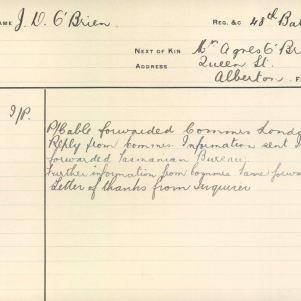 NAME J. D. O'Brien REG. &C 43th Bat
NEXT OF KIN Mrs Agnes O'Br
ADDRESS Queen St.
Alberton. F
I/P.
P/Cable forwarded Commrs Lond
Reply from Commrs. Information sent I
forwarded Tasmanian Bureau.
Further information from Commrs same forwar
Letter of thanks from Inquirer